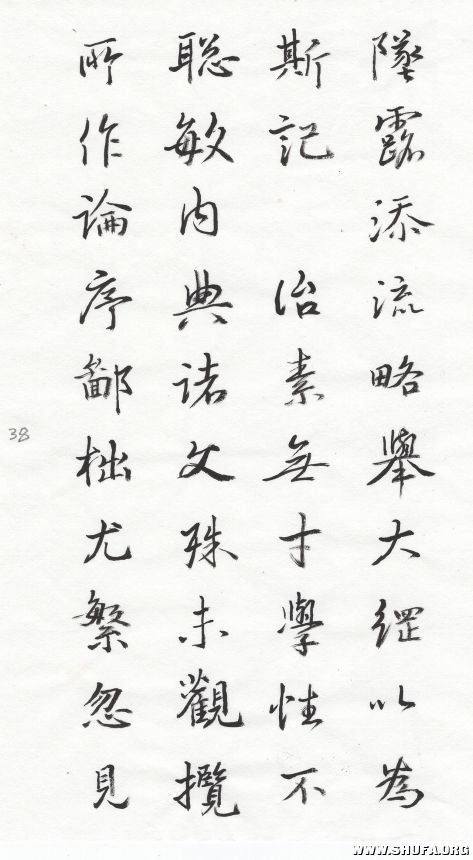 墜露添流略舉大綱以為
斯記 治素無才學性不
聡敏内典諸文殊未觀攬
所作論序鄙拙尤繁忽見
38
WWW.SHUFA.ORG